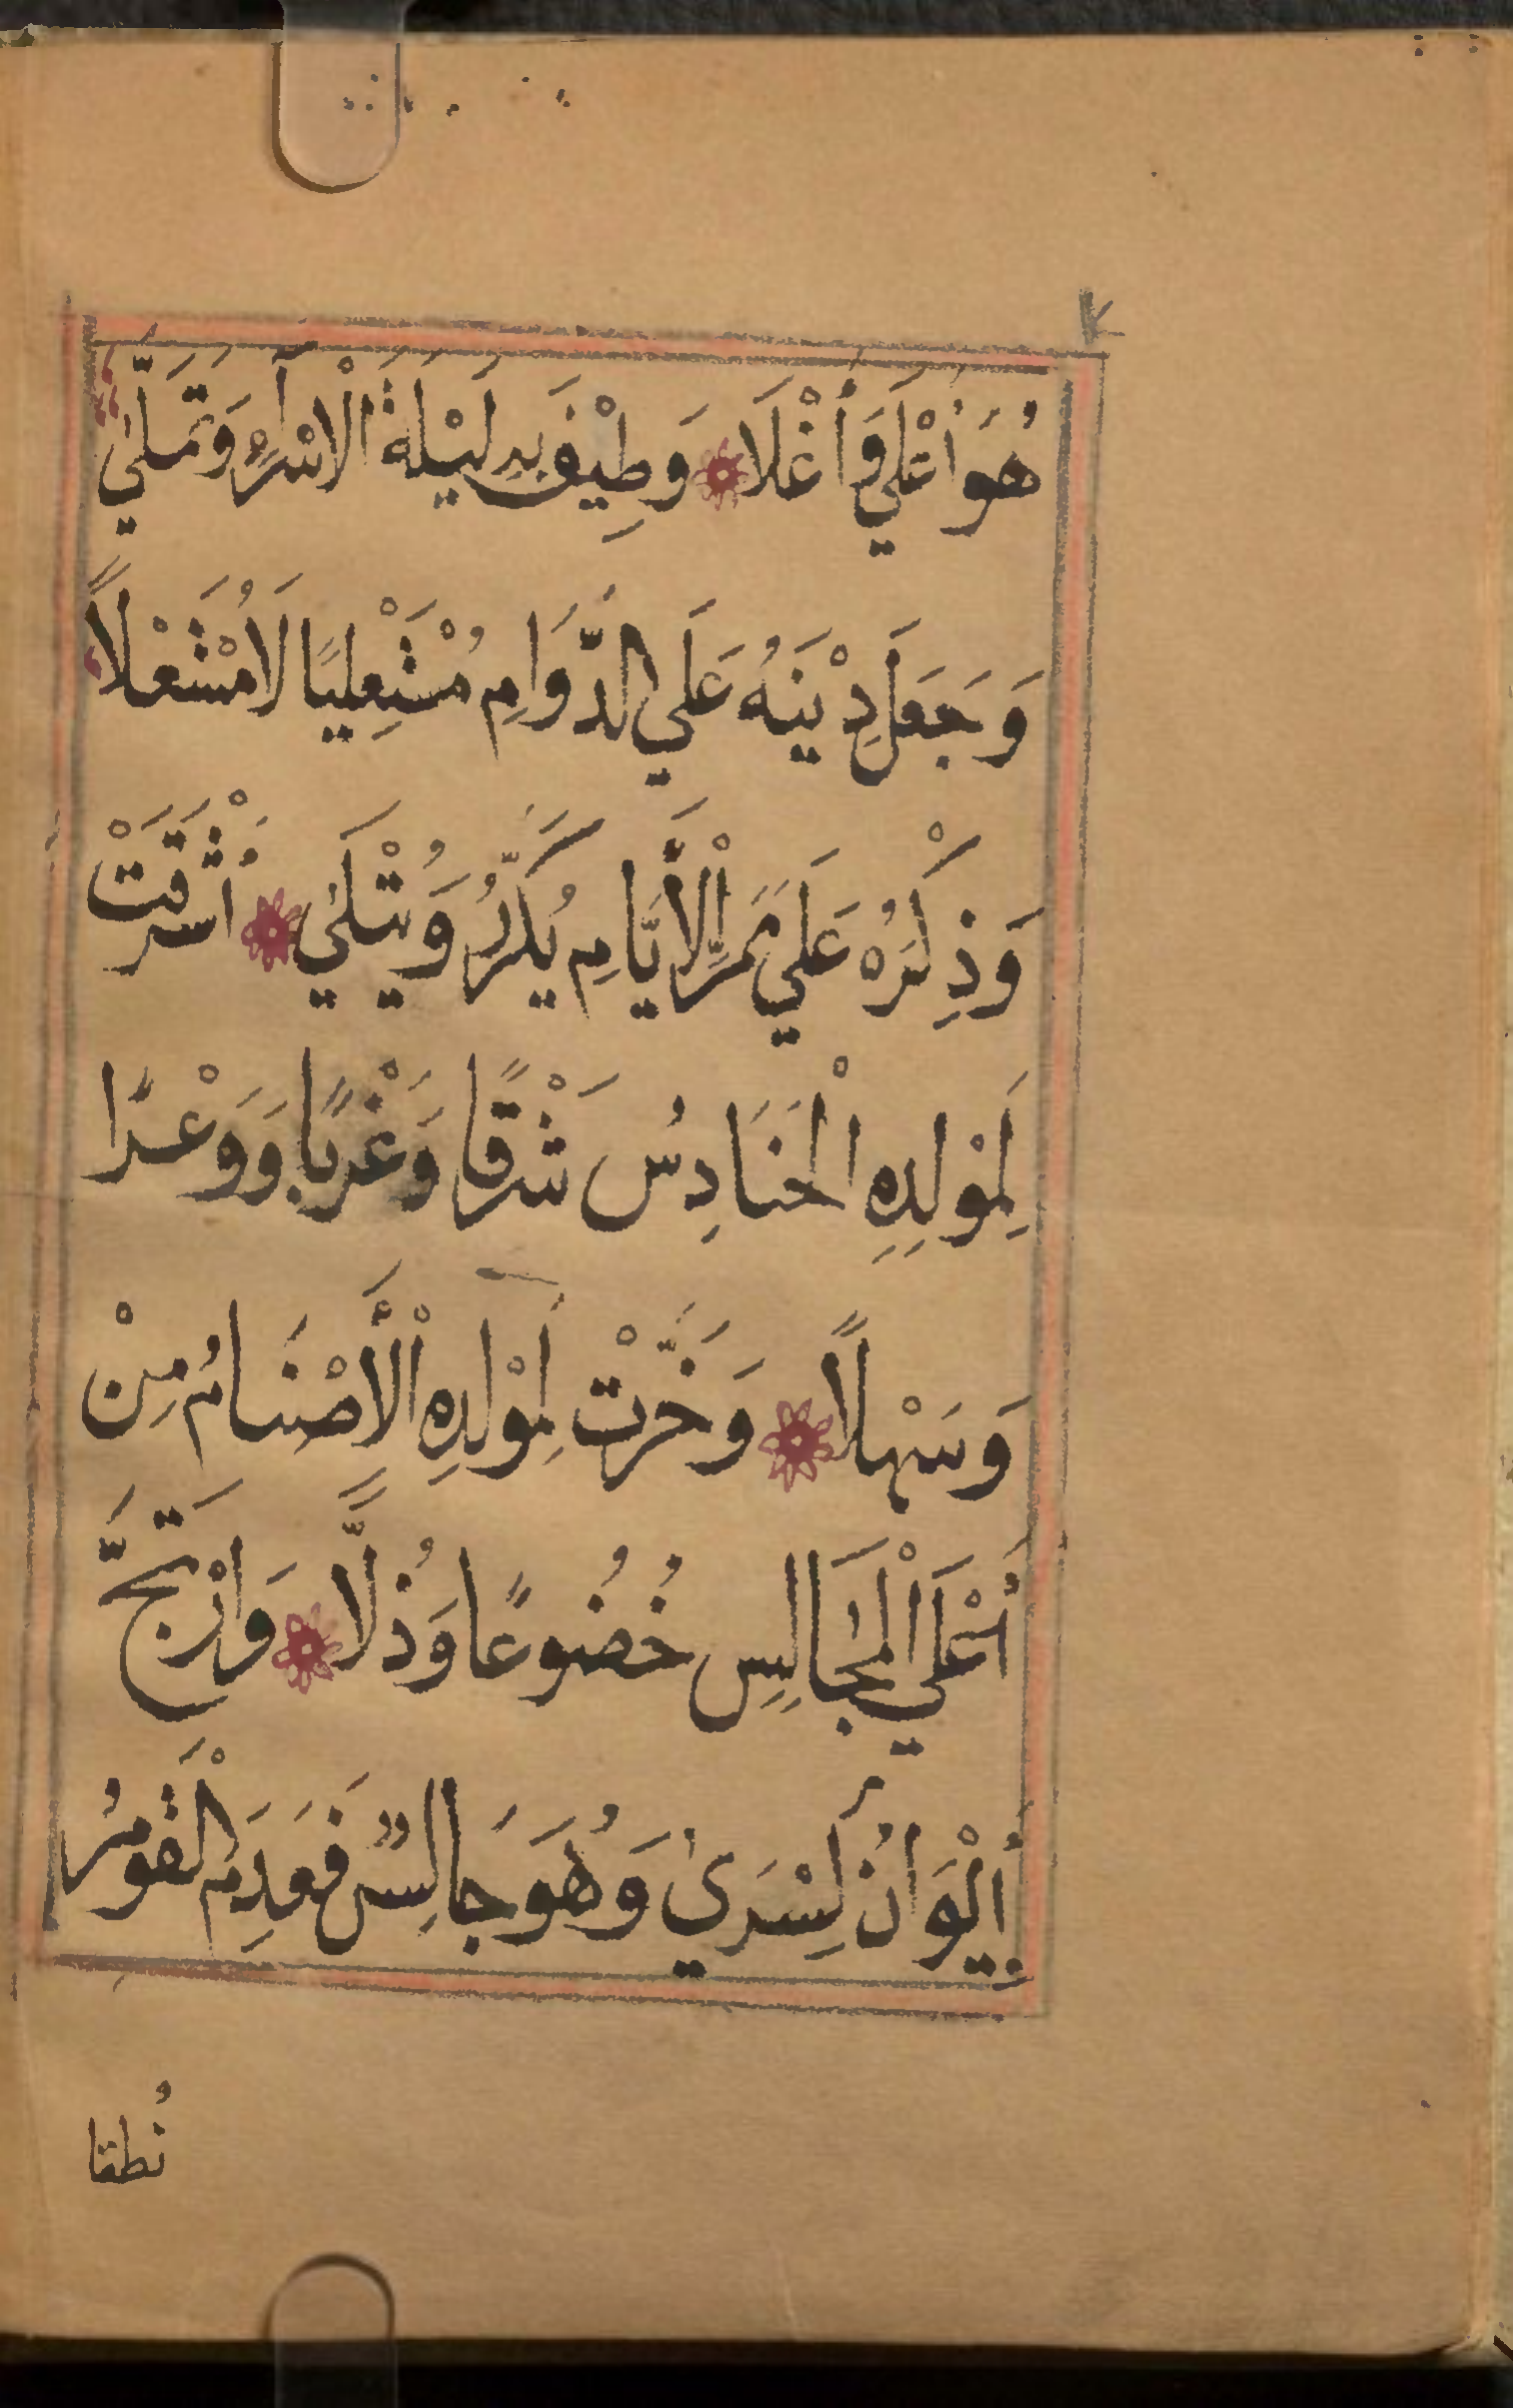 هُوَ أَعْلَي وَأَغْلَا وَطِيْفَ بِهِ لَيْلَةَ الْاسْرَآءِ وَتَمَلَّيٰ
وَجَعَلَ دِيْنَهُ عَلَي الدَّوَامِ مُسْتَعْلِيًا لَا مُسْتَعْلًا
وَذِكْرُهُ عَلَي مَمَرِّ الْأَيَّامِ يُكَرَّرُ وَيُتْلَيٰ أَشْرَقَتْ
لِمَوْلِدِهِ الْحَنَادِسُ شَرْقًا وَغَرْبًا وَوَعْرًا
وَسَهْلًا وَخَرَّتْ لِمَوْلِدِهِ الْأَصْنَامُ مِنْ
أَعْلَي الْمَجَالِسِ خُضُوعًا وَذُلًّا وَارْتَجَّ
إِيْوَانُ كِسْرَيٰ وَهُوَ جَالِسٌ فَعَدِمَ الْقَوْمُ
نُطقا